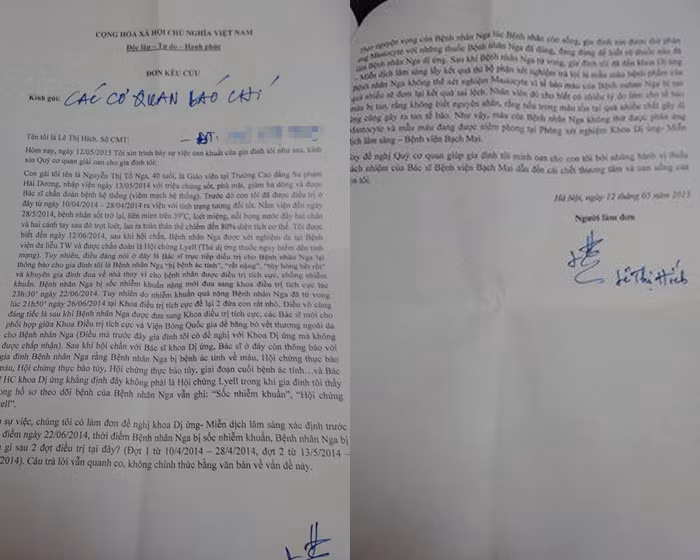 CỘNG HÒA XÃ HỘI CHỦ NGHĨA VIỆT NAM
Độc lập – Tự do – Hạnh phúc
ĐƠN KÊU CỨU
Kính gửi: CÁC CƠ QUAN BÁO CHÍ
Tên tôi là Lê Thị Hích. Số CMT: ĐT:
Hôm nay, ngày 12/05/2015 Tôi xin trình bày sự việc oan khuất của gia đình tôi như sau, kính
xin Quý cơ quan giải oan cho gia đình tôi:
Con gái tôi tên là Nguyễn Thị Tố Nga, 40 tuổi, là Giáo viên tại Trường Cao đẳng Sư phạm
Hải Dương, nhập viện ngày 13/05/2014 với triệu chứng sốt, phù mặt, giảm ba dòng và được
Bác sĩ chẩn đoán bệnh hệ thống (viêm mạch hệ thống). Trước đó con tôi đã được điều trị ở
đây từ ngày 10/04/2014 – 28/04/2014 ra viện với tình trạng tương đối tốt. Nằm viện đến ngày
28/5/2014, bệnh nhân sốt trở lại, liên miên trên 39°C, loét miệng, nổi bọng nước đầy hai chân
và hai cánh tay sau đó trợt loét, lan ra toàn thân thể chiếm đến 80% diện tích cơ thể. Tôi được
biết đến ngày 12/06/2014, sau khi hội chẩn, Bệnh nhân Nga được xét nghiệm da tại Bệnh
viện da liễu TW và được chẩn đoán là Hội chứng Lyell (Thể dị ứng thuốc nguy hiểm đến tính
mạng). Tuy nhiên, điều đáng nói ở đây là Bác sĩ trực tiếp điều trị cho Bệnh nhân Nga lại
thông báo cho gia đình tôi là Bệnh nhân Nga "bị bệnh ác tính", "rất nặng", "tủy hỏng hết rồi"
và khuyên gia đình đưa về nhà thay vì cho bệnh nhân được điều trị tích cực, chống nhiễm
khuẩn. Bệnh nhân Nga bị sốc nhiễm khuẩn nặng mới đưa sang khoa điều trị tích cực lúc
23h:30' ngày 22/06/2014. Tuy nhiên do nhiễm khuẩn quá nặng Bệnh nhân Nga đã tử vong
lúc 21h50' ngày 26/06/2014 tại Khoa điều trị tích cực để lại 2 đứa con rất nhỏ. Điều vô cùng
đáng tiếc là sau khi Bệnh nhân Nga được đưa sang Khoa điều trị tích cực, các Bác sĩ mới cho
phối hợp giữa Khoa Điều trị tích cực và Viện Bỏng Quốc gia để băng bó vết thương ngoài da
cho Bệnh nhân Nga (Điều mà trước đây gia đình tôi có đề nghị với Khoa Dị ứng mà không
được chấp nhận). Sau khi hội chẩn với Bác sĩ khoa Dị ứng, Bác sĩ ở đây còn thông báo với
gia đình Bệnh nhân Nga rằng Bệnh nhân bị bệnh ác tính về máu, Hội chứng thực bào
máu, Hội chứng thực bào tủy, Hội chứng thực bào tủy, giai đoạn cuối bệnh ác tính…và Bác
HC khoa Dị ứng khẳng định đây không phải là Hội chứng Lyell trong khi gia đình tôi thấy
ong hồ sơ theo dõi bệnh của Bệnh nhân Nga vẫn ghi: "Sốc nhiễm khuẩn", "Hội chứng
ell".
sự việc, chúng tôi có làm đơn đề nghị khoa Dị ứng- Miễn dịch lâm sàng xác định trước
điểm ngày 22/06/2014, thời điểm Bệnh nhân Nga bị sốc nhiễm khuẩn, Bệnh nhân Nga bị
gì sau 2 đợt điều trị tại đây? (Đợt 1 từ 10/4/2014 – 28/4/2014, đợt 2 từ 13/5/2014 –
2014). Câu trả lời vẫn quanh co, không chính thức bằng văn bản về vấn đề này.
nguyện vọng của Bệnh nhân Nga lúc Bệnh nhân còn sống, gia đình
Mastocyte với những thuốc Bệnh nhân Nga đã dùng
Bệnh nhân Nga dị ứng. Sau khi Bệnh nhân Nga tử vong, gia đình tôi đã đến khoa Dị ứng
– Miễn dịch lâm sàng lấy kết quả thì
Bệnh nhân Nga không thể xét nghiệm Mastocyte vì tế bào máu của Bệnh nhân Nga bị tan
quá nhiều sẽ đem lại kết quả sai lệch. Nhân viên đó cho biết có nhiều lý do làm cho tế bào
máu bị tan, rằng không biết nguyên nhân, rằng nếu trong máu tồn tại quá nhiều chất gây dị
ứng cũng gây ra tan tế bào. Như vậy, máu của Bệnh nhân Nga không thử được phản ứng
Mastocyte và mẫu máu đang được niêm phong tại Phòng xét nghiệm Khoa Dị ứng- Miễn
dịch lâm sàng – Bệnh viện Bạch Mai.
ậy đề nghị Quý cơ quan giúp gia đình tôi minh oan cho con tôi bởi những hành vi thiếu
ách nhiệm của Bác sĩ Bệnh viện Bạch Mai dẫn đến cái chết thương tâm và oan uổng của
on tôi.
Hà Nội, ngày 12 tháng 05 năm 2015
Người làm đơn
Lê Thị Hích